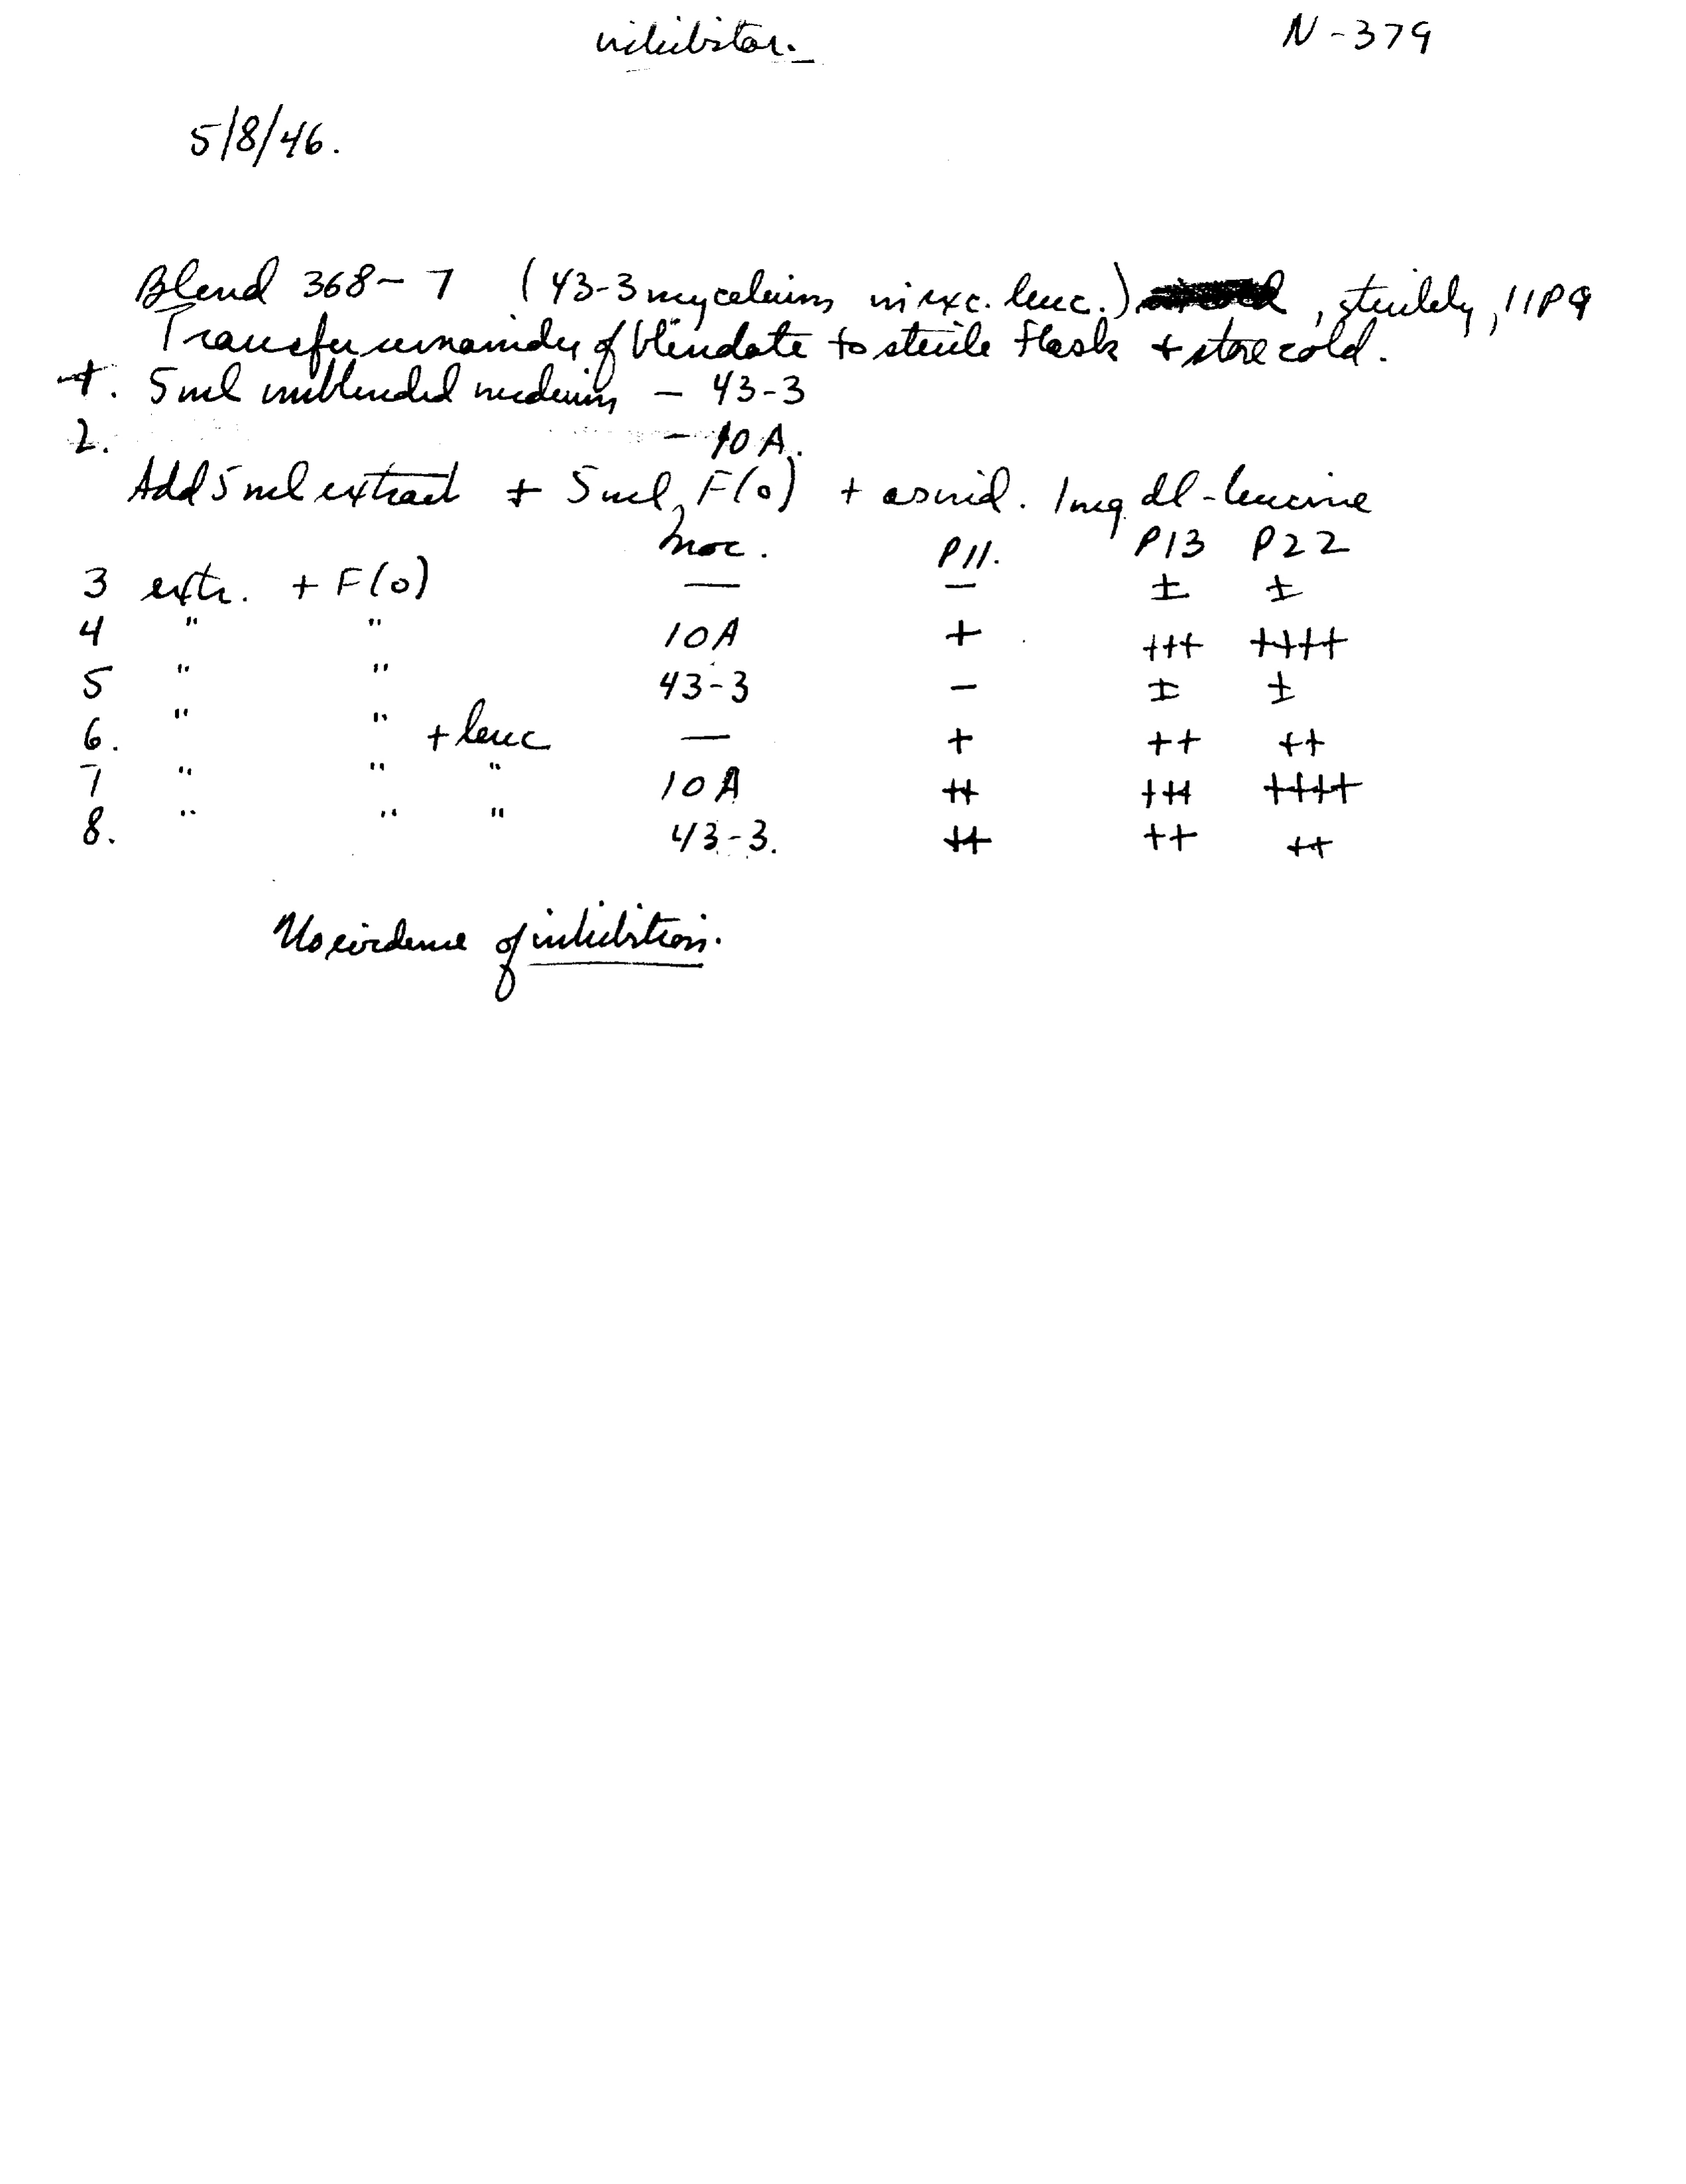 inhibitor. N-379
5/8/46.
Blend 368-7 (43-3 mycelium in exc. leuc.) , sterilely, 11P9
Transfer remainder of blendate to sterile flask + store cold.
1. 5 ml unblended medium - 43-3
2. - 10A.
Add 5 ml extract + 5 ml F(0) + as ind. 1 mg dl-leucine
Inoc. P11. P13 P22
3 extr. + F(0) — - ± ±
4 " " 10A + +++ ++++
5 " " 43-3 - ± ±
6. " " + leuc — + ++ ++
7 " " " 10A ++ +++ ++++
8. " " " 43-3. ++ ++ ++
No evidence of inhibition.